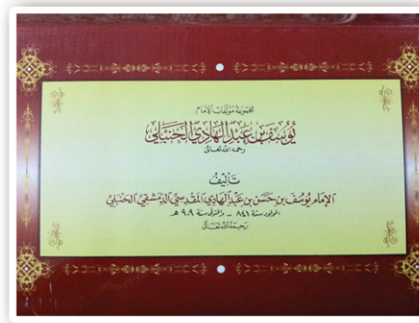 مجموعة مؤلفات الإمام
يوسف بن عبد الهادي الحنبلي
رحمه الله تعالى
تأليف
الإمام يوسف بن حسن بن عبد الهادي المقدسي الدمشقي الحنبلي
المولود سنة ٨٤١ - والمتوفى سنة ٩٠٩ هـ
رحمه الله تعالى